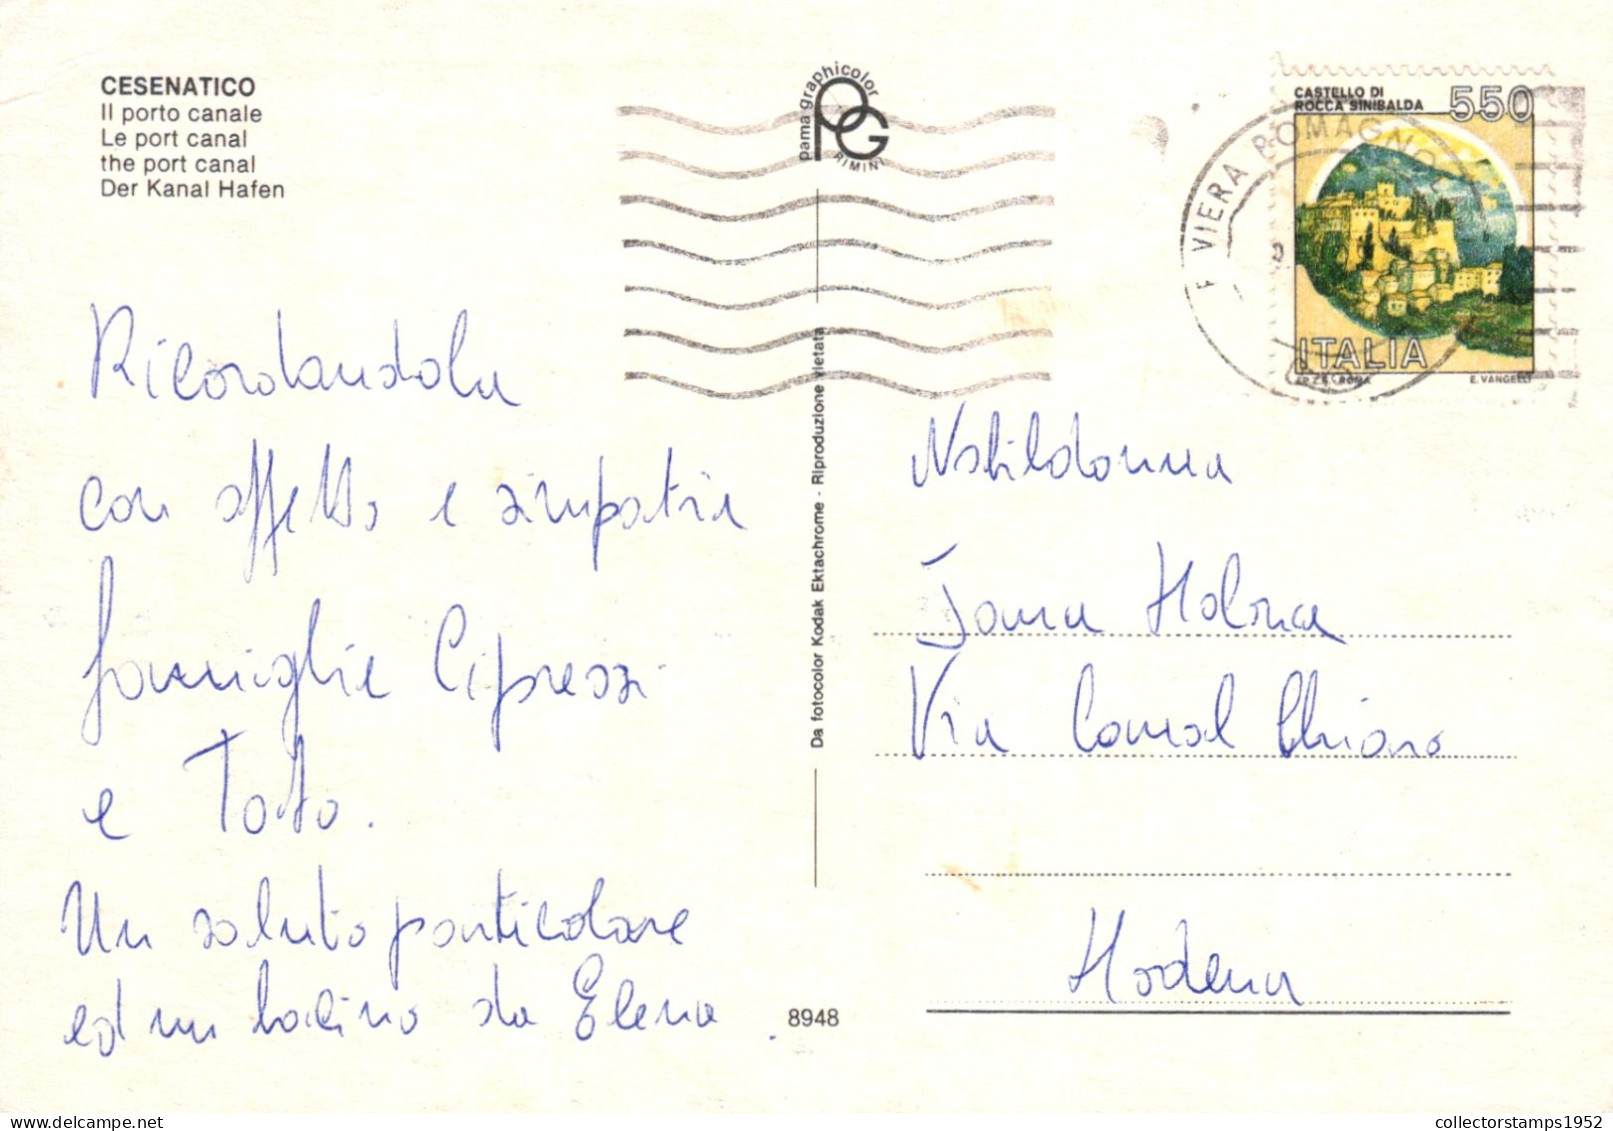 CESENATICO
Il porto canale
Le port canal
the port canal
Der Kanal Hafen
pama graphicolor
PG
RIMINI
CASTELLO DI
ROCCA SINIBALDA
550
ITALIA
I.P.Z.S. ROMA
E. VANGELLI
VIERA ROMAGNOL
Ricordandola
con affetto e simpatia
famiglie Cipressi
e Toto.
Un saluto particolare
ed un bacino da Elena.
Da fotocolor Kodak Ektachrome - Riproduzione vietata
8948
Nobildonna
Via Canal Chiaro
Modena
collectorstamps1952